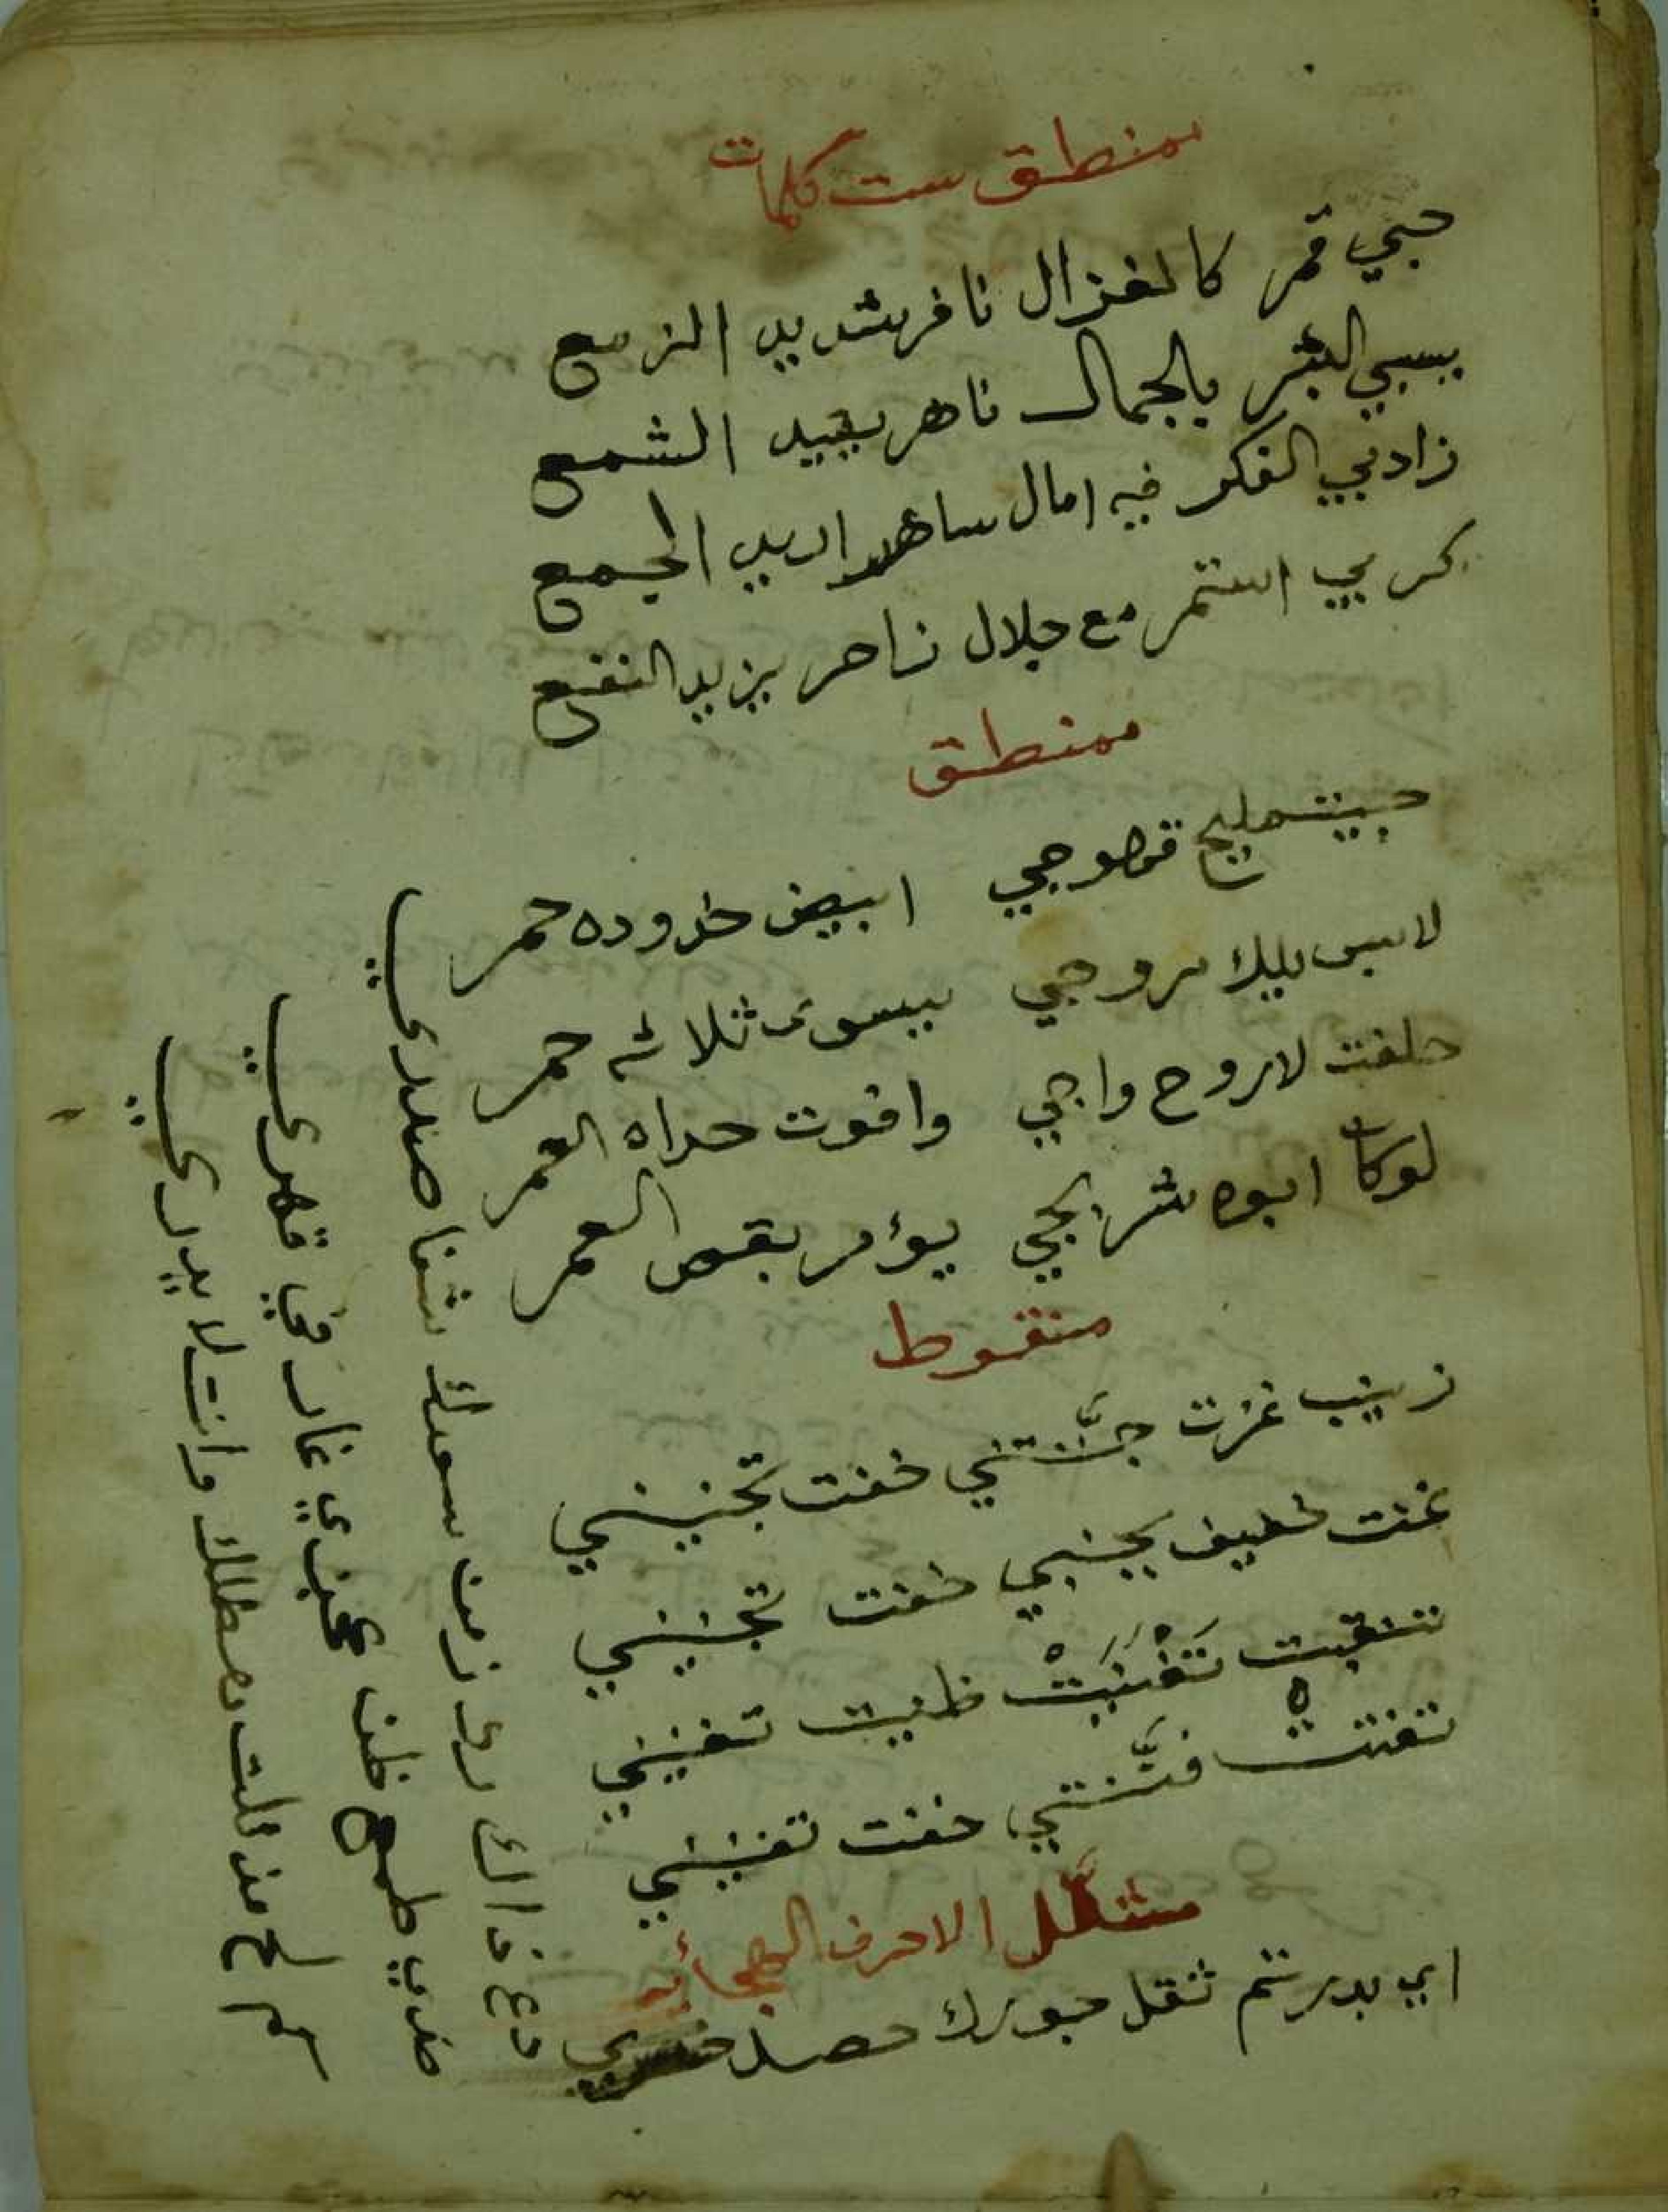 منطق ست كلمات
حبي قمر كالغزال نافر شديد الزمع
يسبي البشر بالجمال ناهر يقيد الشمع
زاد بي الفكر فيه امال ساهر اريد الجمع
كربي استمر مع جلال زاهر يزيد النفع
منطق
حبيت مليح قهوجي ابيض خدوده حمر
لابس يلك سروجي يسوى ثلاثه حمر
حلفت لاروح واجي وافوت حداه العمر
لو كان ابوه شربجي يؤمر بقص العمر
منقوط
زينب غزت جنّتني خفت تجنيني
غنت خفيف بجنبي خفت تجنيني
تنقبت تغنيت ظنيت تغنيني
تفتنت فتّنتني خفت تفنيني
مثقّل الاحرف الهجائيه
اي بدر تم ثقل جورك حصل خسري
دع ذاك رد زمن سعدك شفا صدري
ضدي طمع ظن عجزي غار في قهري
كم لح من ملت مطلك وانت لا يدري